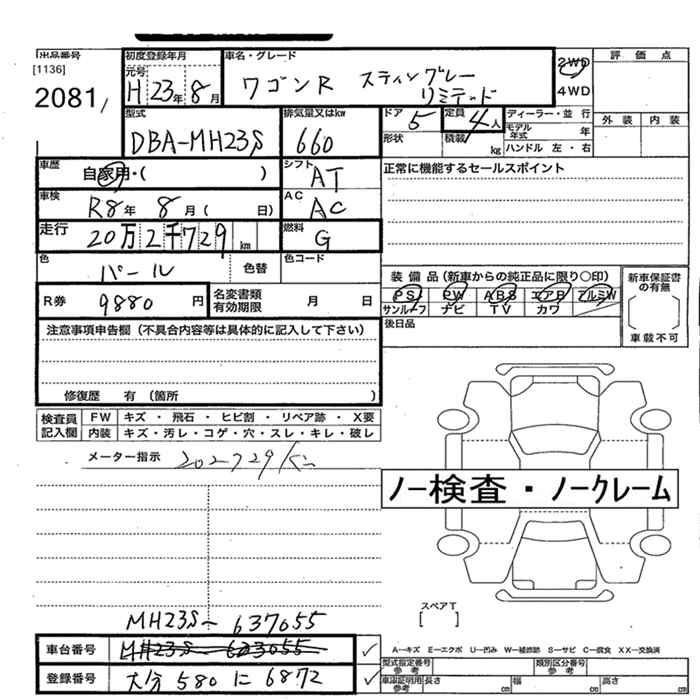 出品番号 初度登録年月 車名・グレード 2WD 評価点
[1136] 元号
2081 H 23年 8月 ワゴンR スティングレー 4WD
リミテッド
型式 排気量又はkw ドア 定員 ディーラー・並行 外装 内装
DBA-MH23S 660 5 4人 モデル年式 年
形状 積載 kg ハンドル 左・右
車歴 自家用・( ) シフト AT 正常に機能するセールスポイント
車検 R8年 8月( 日) AC AC
走行 20万2千729km 燃料 G
色 パール 色替 色コード
装備品(新車からの純正品に限り○印) 新車保証書の有無
R券 9880円 名変書類有効期限 月 日 PS PW ABS エアB アルミW
サンルーフ ナビ TV カワ
後日品 車載不可
注意事項申告欄(不具合内容等は具体的に記入して下さい)
修復歴 有(箇所 )
検査員記入欄 FW キズ・飛石・ヒビ割・リペア跡・X要
内装 キズ・汚レ・コゲ・穴・スレ・キレ・破レ
メーター指示 202729km
ノー検査・ノークレーム
スペアT
[ ]
MH23S-637055
車台番号 MH23S- A-キズ E-エクボ U-凹み W-補修跡 S-サビ C-腐食 XX-交換済
型式指定番号 参考 類別区分番号 参考
登録番号 大分 580 に 6872 車庫証明用 参考 長さ cm 幅 cm 高さ cm